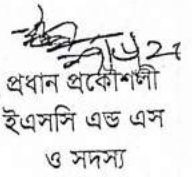 প্রধান প্রকৌশলী
ইএসসি এন্ড এস
ও সদস্য